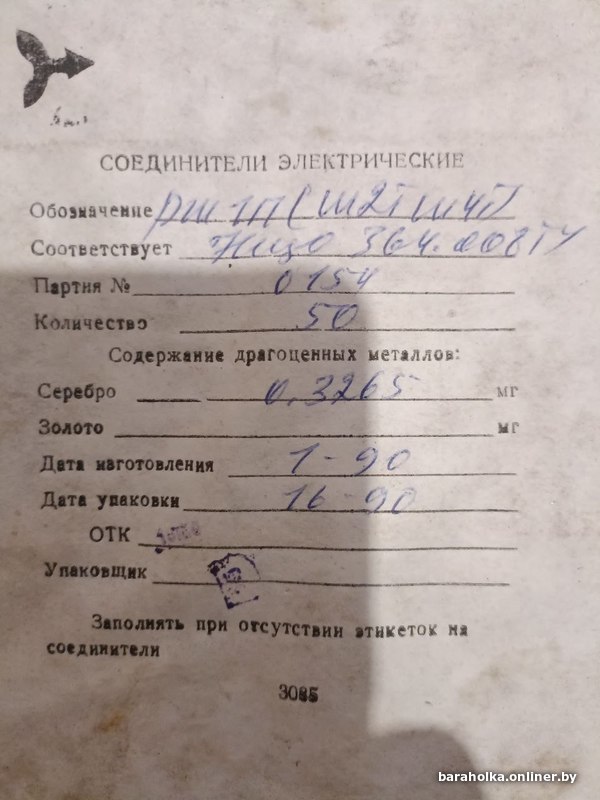 СОЕДИНИТЕЛИ ЭЛЕКТРИЧЕСКИЕ
Обозначение
Соответствует 364.008ТУ
Партия № 0154
Количество 50
Содержание драгоценных металлов:
Серебро 0,3265 мг
Золото мг
Дата изготовления 1-90
Дата упаковки 16-90
ОТК
Упаковщик
Заполнять при отсутствии этикеток на
соединители
3085
baraholka.onliner.by